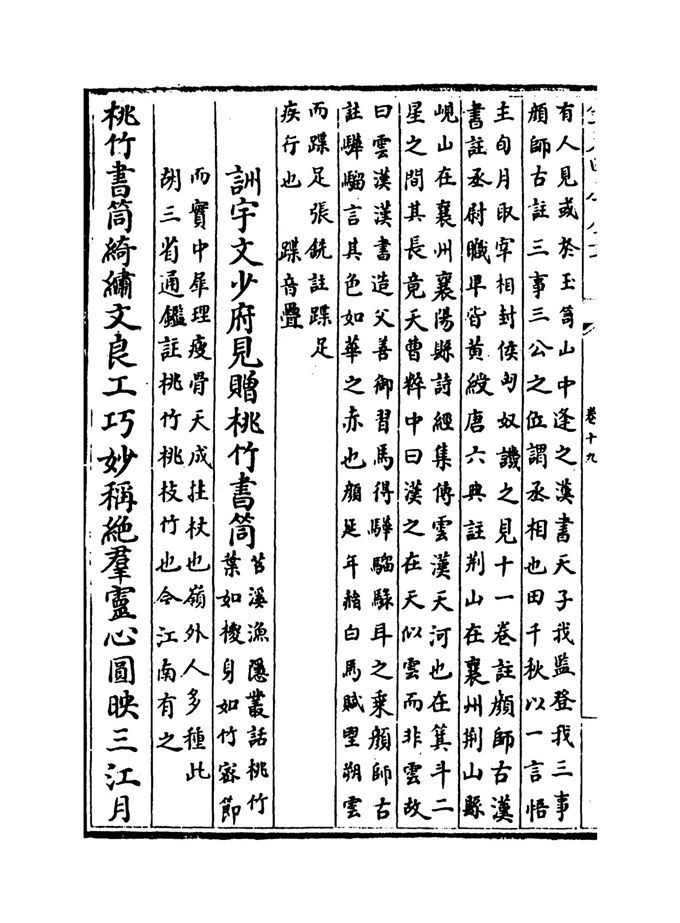 有人見或於玉笥山中逢之漢書天子我監登我三事
顔師古註三事三公之位謂丞相也田千秋以一言悟
主旬月取宰相封侯匈奴譏之見十一卷註顔師古漢
書註丞尉職卑皆黄綬唐六典註荆山在襄州荆山縣
峴山在襄州襄陽縣詩經集傳雲漢天河也在箕斗二
星之間其長竟天曹粹中曰漢之在天似雲而非雲故
曰雲漢漢書造父善御習馬得驊騮騄耳之乗顔師古
註驊騮言其色如華之赤也顔延年赭白馬賦望朔雲
而蹀足張銑註蹀足
疾行也　蹀音疊
詶宇文少府見贈桃竹書筒
苕溪漁隱叢話桃竹
葉如椶身如竹密節
而實中犀理瘦骨天成拄杖也嶺外人多種此
胡三省通鑑註桃竹桃枝竹也今江南有之
桃竹書筒綺繡文良工巧妙稱絶羣靈心圓映三江月
卷十九